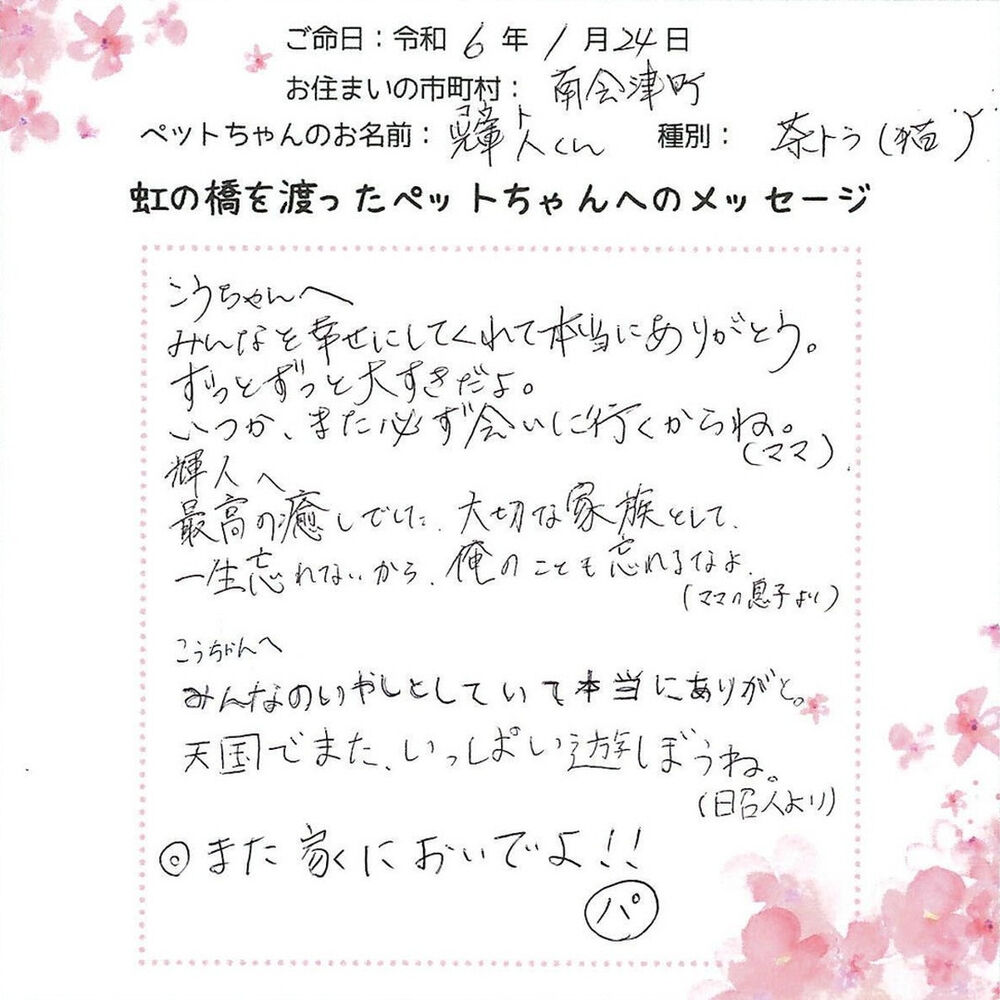 ご命日：令和 6 年 1 月 24 日
お住まいの市町村： 南会津町
コウ ト
ペットちゃんのお名前： 輝人くん 種別： 茶トラ(猫)
虹の橋を渡ったペットちゃんへのメッセージ
こうちゃんへ
みんなと幸せにしてくれて本当にありがとう。
ずっとずっと大すきだよ。
いつか、また必ず会いに行くからね。
(ママ)
輝人へ
最高の癒しでした、大切な家族として、
一生忘れないから、俺のことも忘れるなよ、
(ママの息子より)
こうちゃんへ
みんなのいやしとしていて本当にありがと。
天国でまた、いっぱい遊しぼうね。
(昭人より)
◎また家においでよ!!
パ